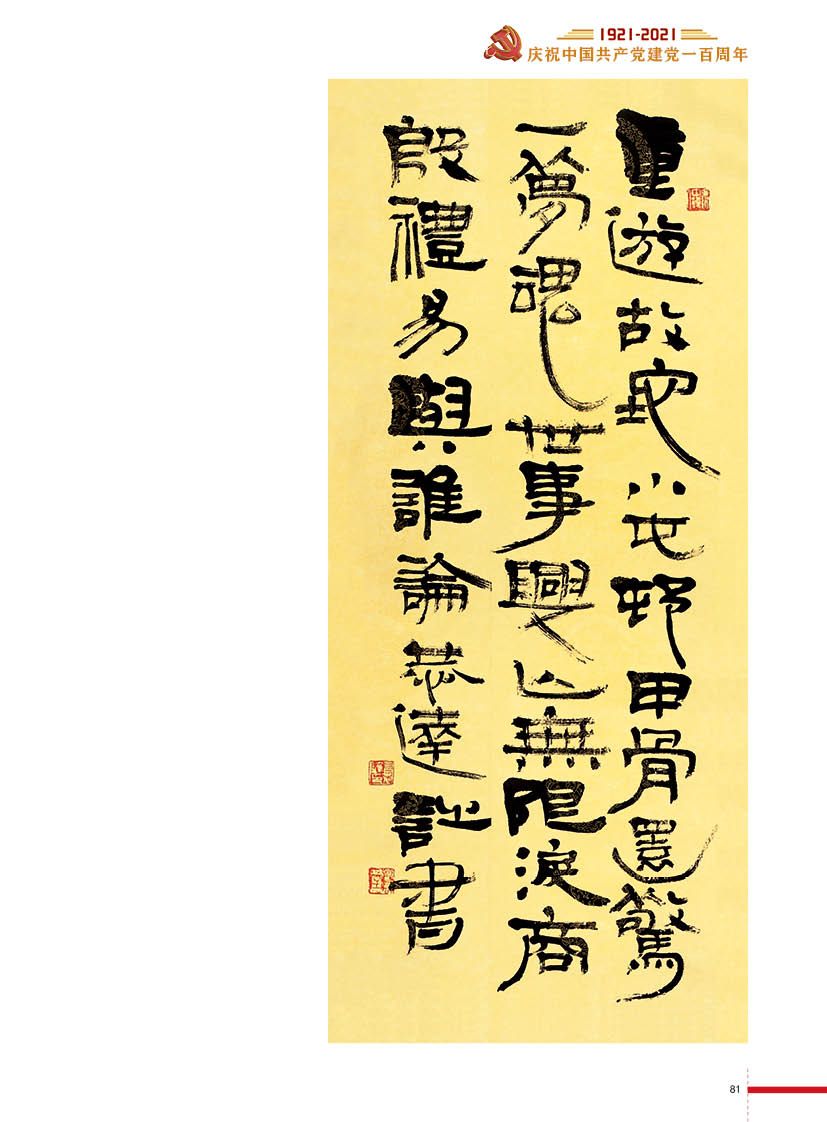 1921-2021
庆祝中国共产党建党一百周年
重遊故小屯邨甲骨還驚
一夢魂世事興亡無限淚商
殷禮易與誰論恭達詩書
81